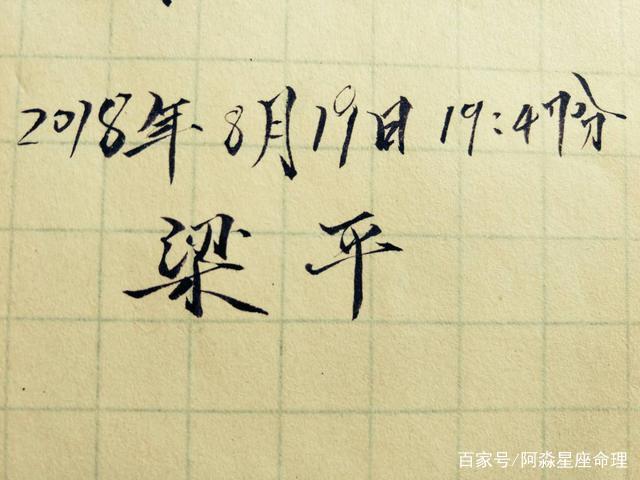 2018年8月19日 19:47分
梁平
百家号/阿淼星座命理